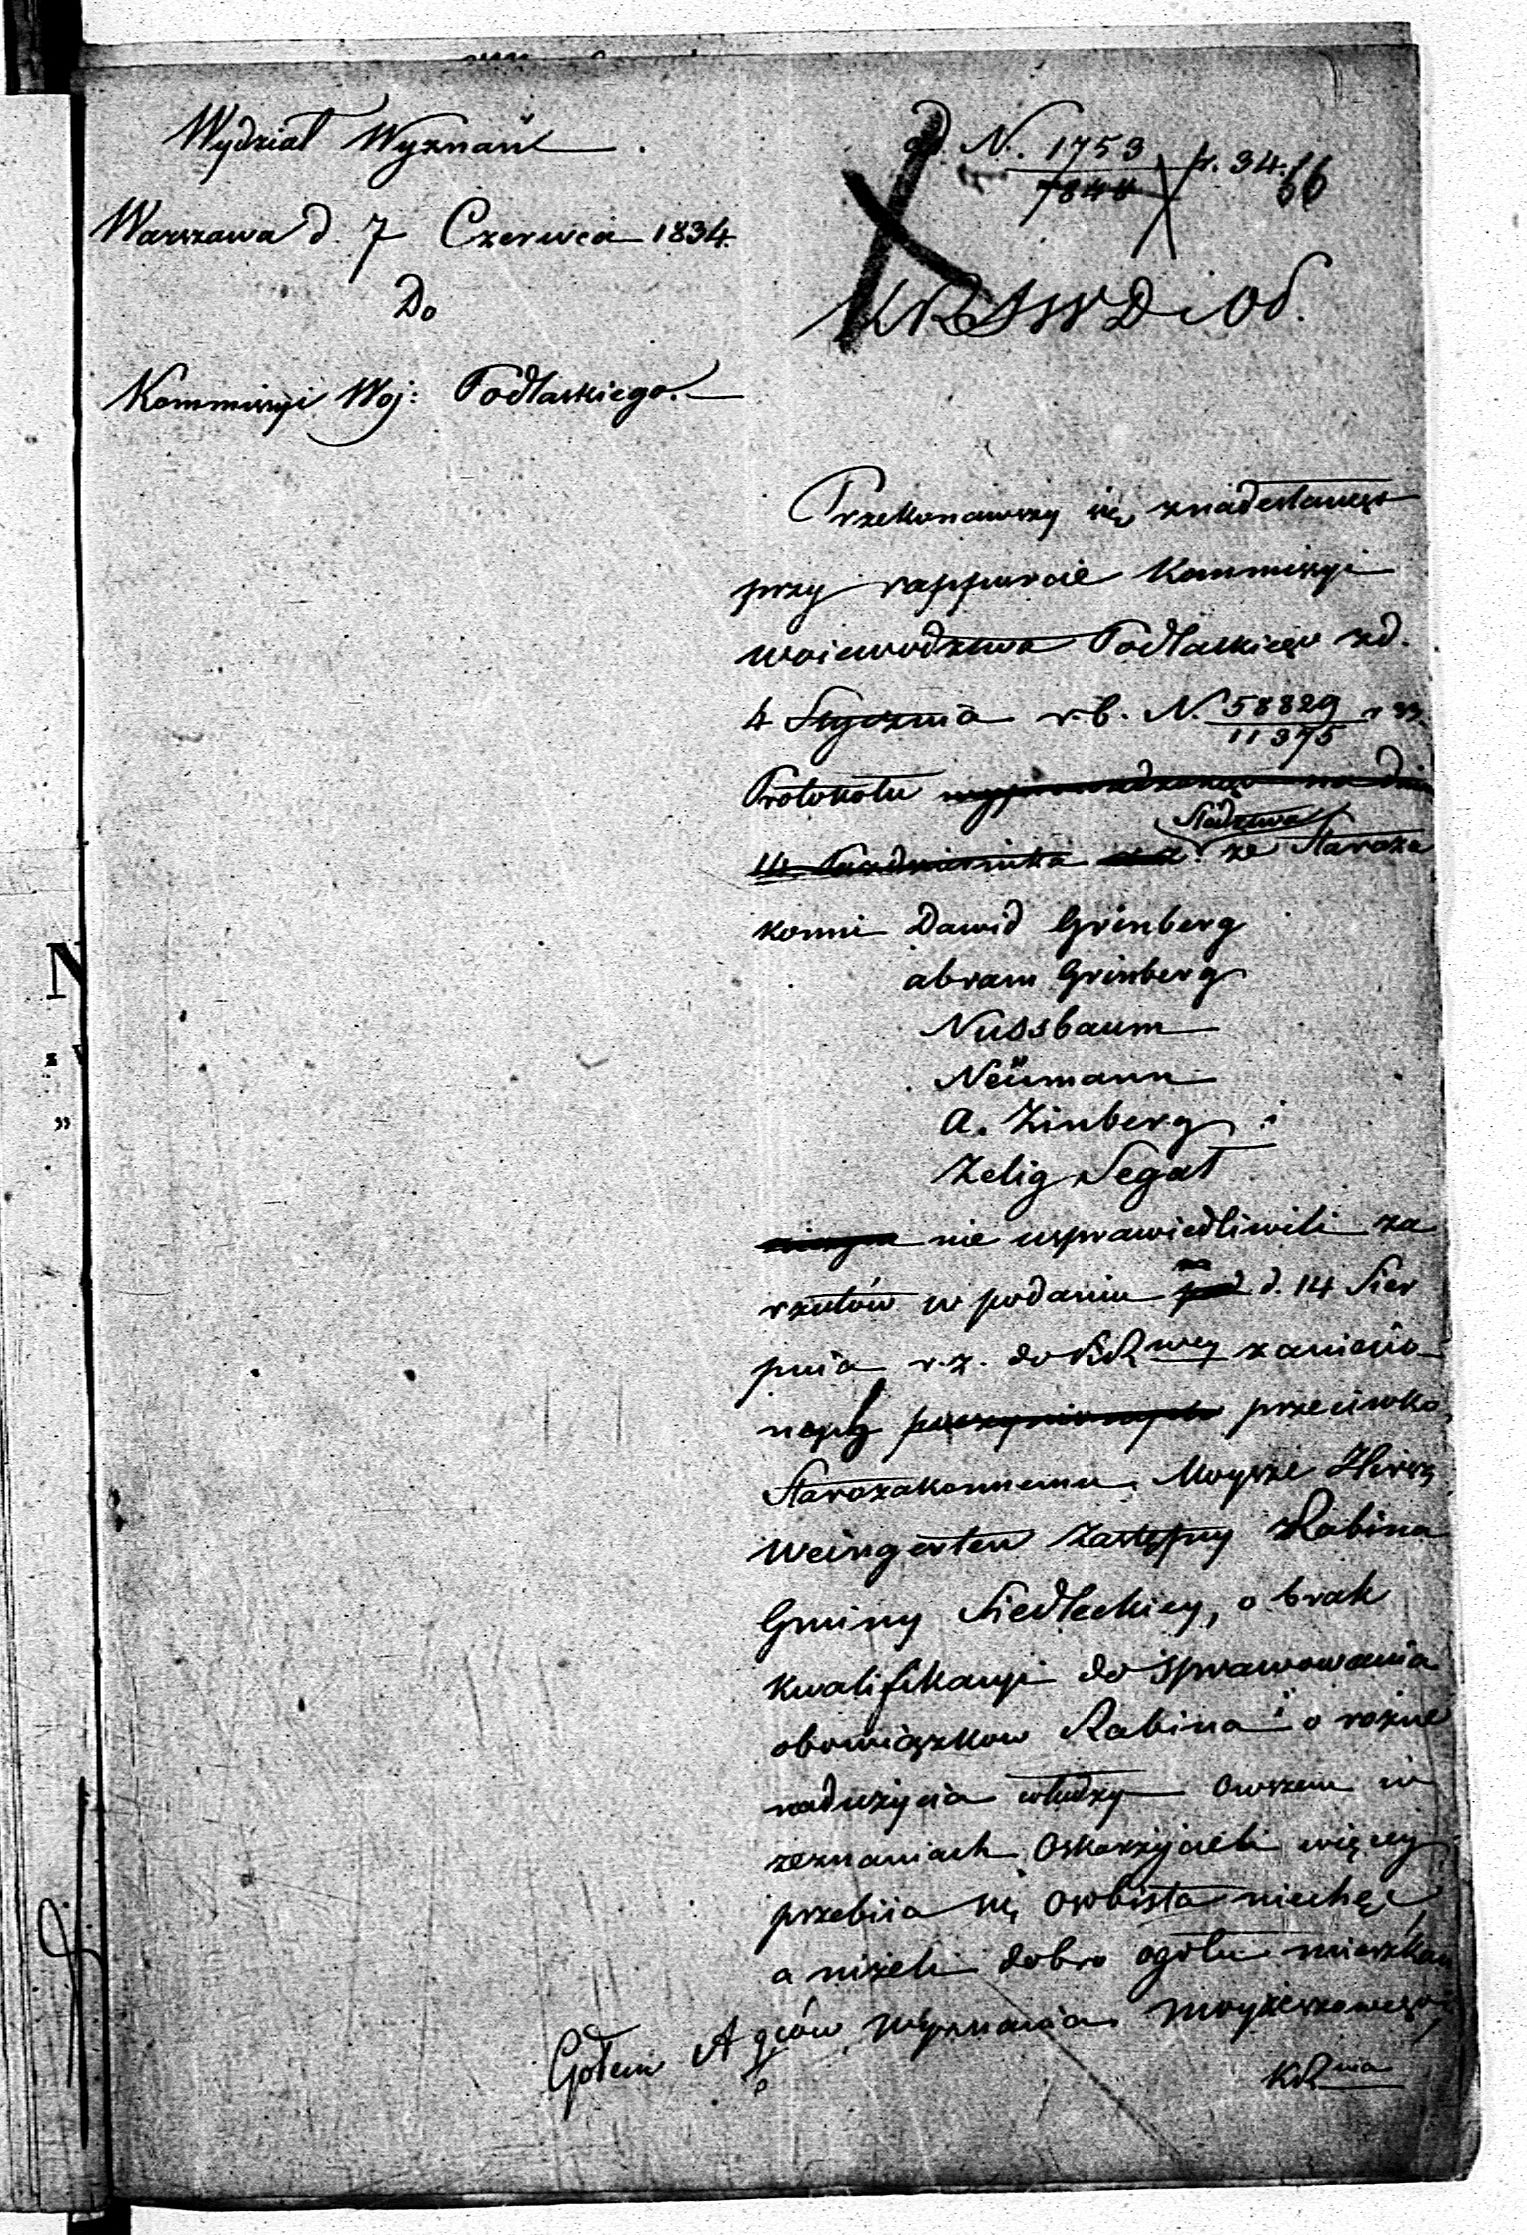 Wydział Wyznań.
Warszawa d. 7 Czerwca 1834.
Do
Kommissyi Woj: Podlaskiego.
ad N. 1753 / 7844 r. 34.
66
KRSWD i OP.
Przekonawszy się z nadesłanego
przy rapporcie Kommissyi
Woiewodztwa Podlaskiego z d.
4 Stycznia r. b. N. 58829 / 11375 r 33.
Protokołu
14 Października Śledztwa że Staroza
konni Dawid Grinberg
abram Grinberg
Nussbaum
Neümann
A. Zinberg i
Zelig Segał
nie usprawiedliwili za
rzutów w podaniu d. 14 Sier
pnia r. z. do KR wey zanieśio
nych przeciwko
Starozakonnemu Moysze Hirsz
Weingerten Zastępcy Rabina
Gminy Siedleckiey, o brak
kwalifikacyi do sprawowania
obowiązkow Rabina i o rożne
nadużycia władzy owszem w
zeznaniach Oskarżycieli więcey
przebiia się osobista niechęć,
a niżeli dobro ogółu mieszkań
ców Wyznania Moyżeszowego,
KR nia